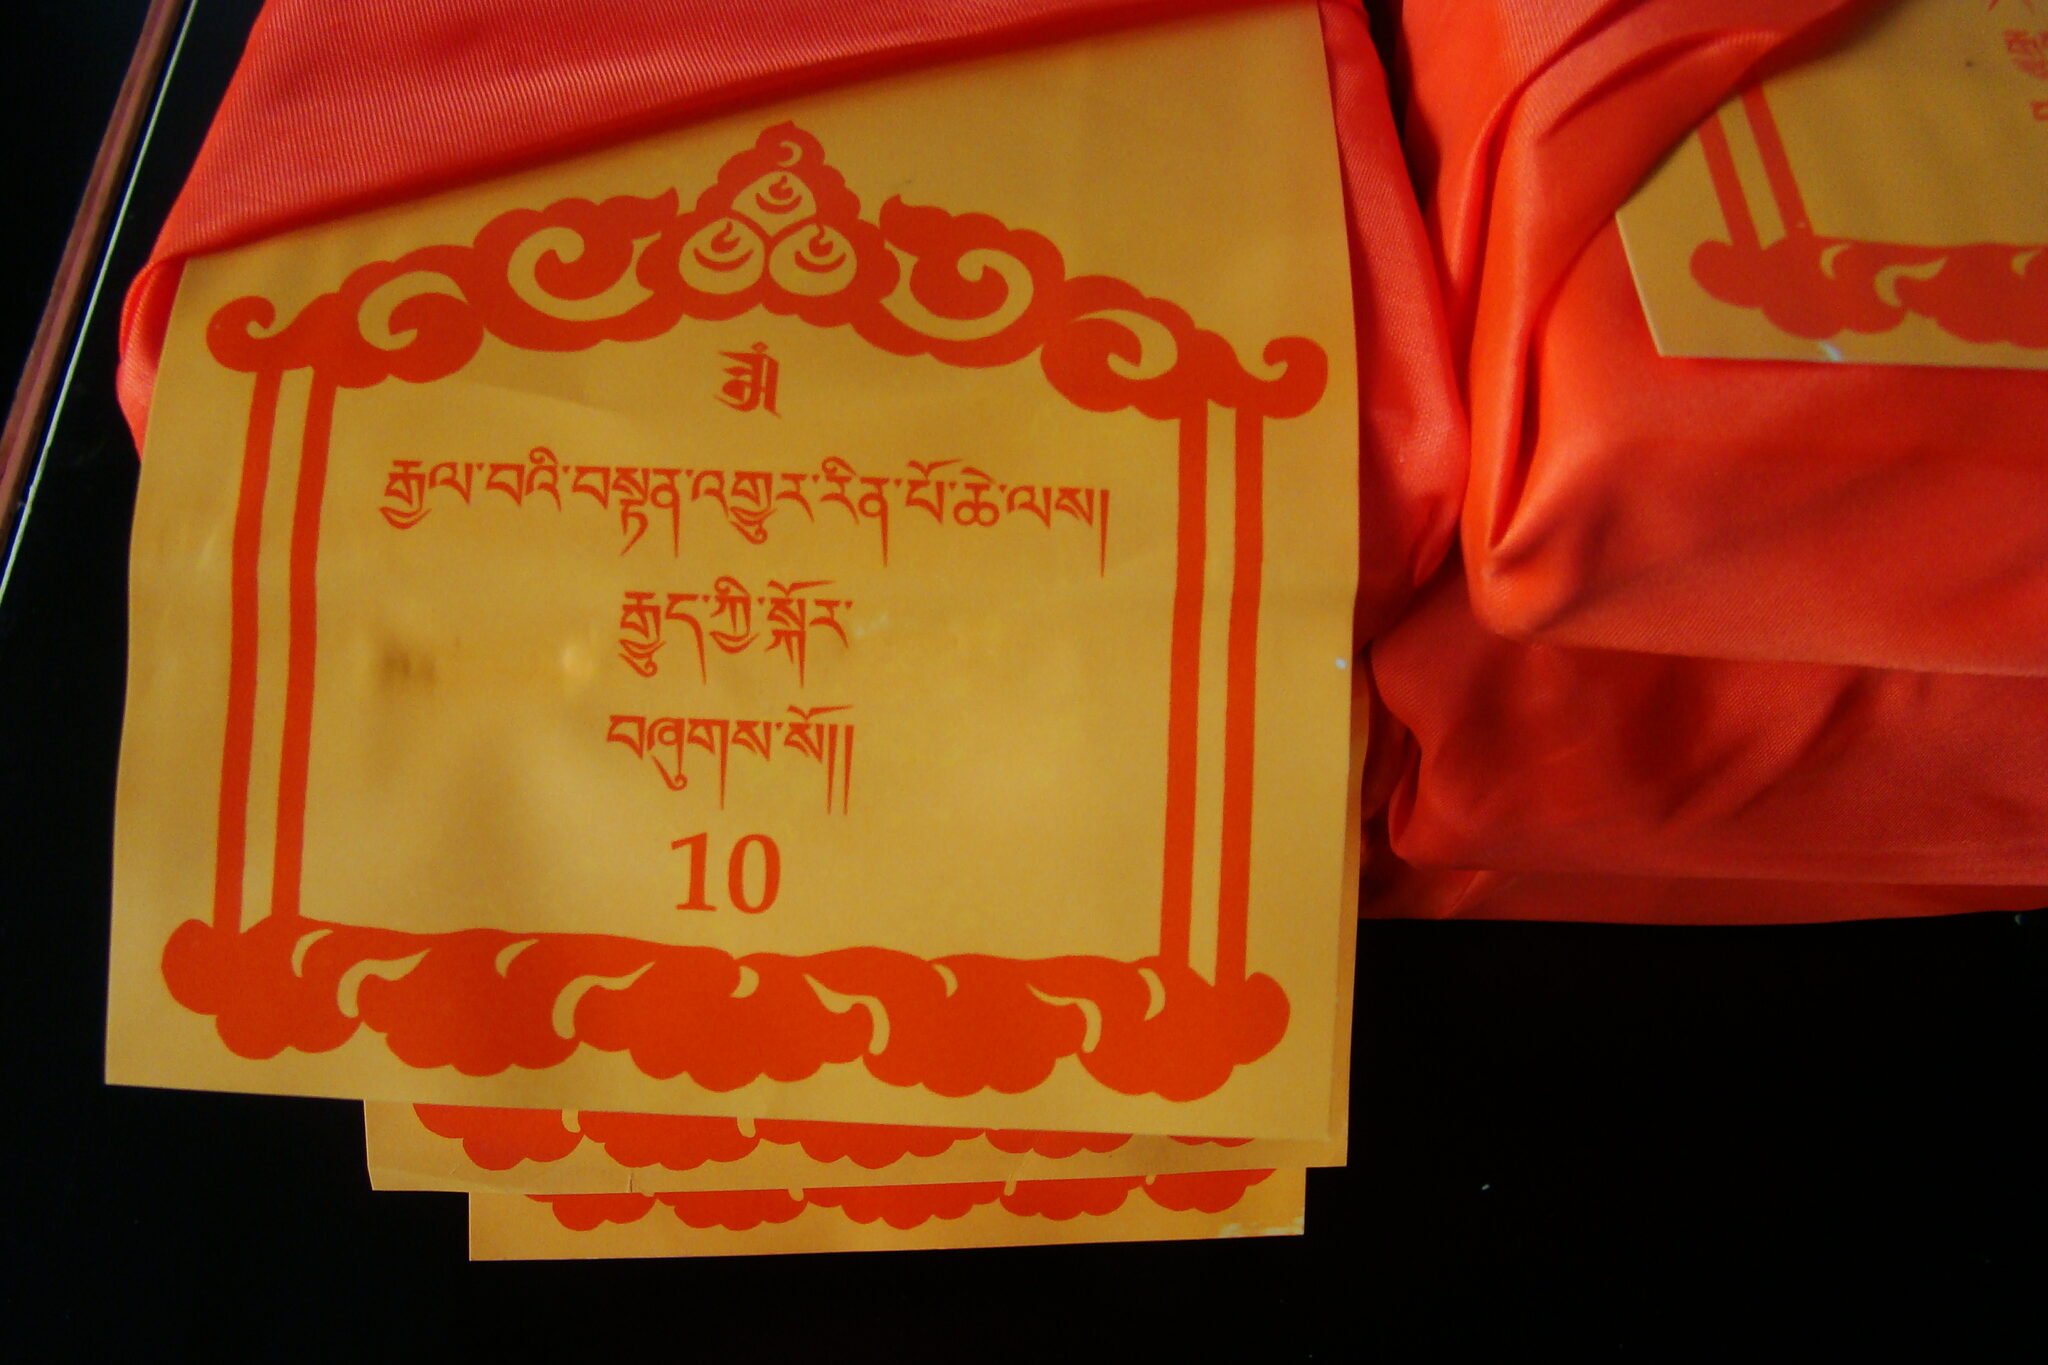 རྒྱལ་བའི་བསྟན་འགྱུར་རིན་པོ་ཆེ་ལས།
རྒྱུད་ཀྱི་སྐོར་
བཞུགས་སོ།།
10